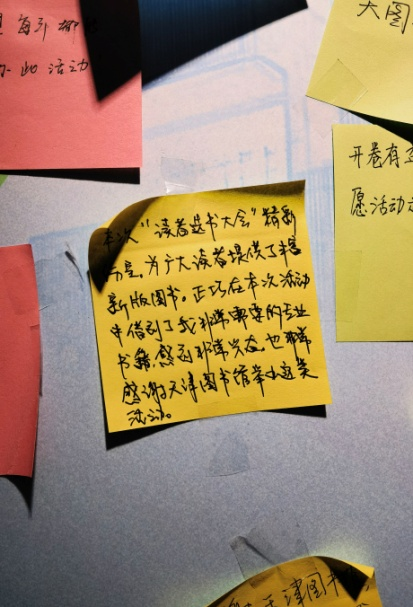 每年都
此活动
大图
开卷有益
愿活动
本次“读者选书大会”精彩
为广大读者提供了丰富
新版图书。正巧在本次活动
中借到了我非常需要的专业
书籍,感到非常兴奋,也非常
感谢天津图书馆举办这类
活动。
天津图书